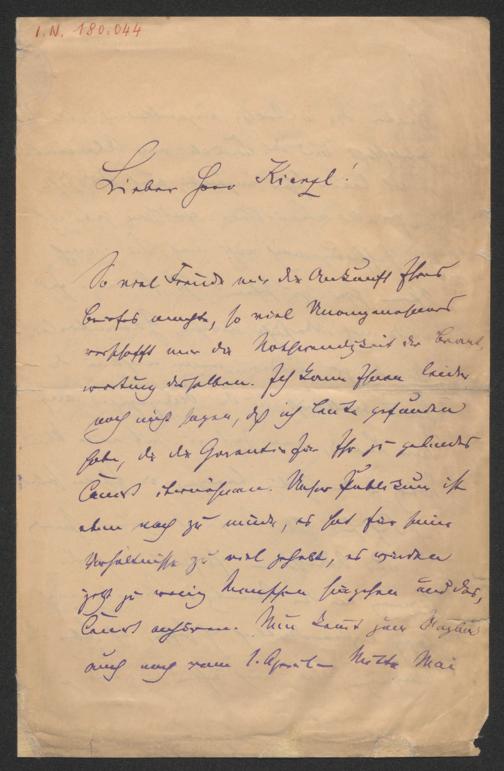 I.N. 180.044
Lieber Herr Kienzl!
So viel Freude mir die Ankunft Ihres
Briefes machte, so viel Unangenehmes
verschafft mir die Nothwendigkeit der Beant-
wortung desselben. Ich kann Ihnen leider
noch nicht sagen, daß ich Leute gefunden
habe, die die Garantie für Ihr zu gebendes
Concert übernehmen. Unser Publikum ist
eben noch zu müde, es hat für seine
Verhältnisse zu viel gehabt, es würden
jetzt zu wenig Menschen hingehen und das
Concert anhören. Nun kommt
auch noch vom 1. April – Mitte Mai